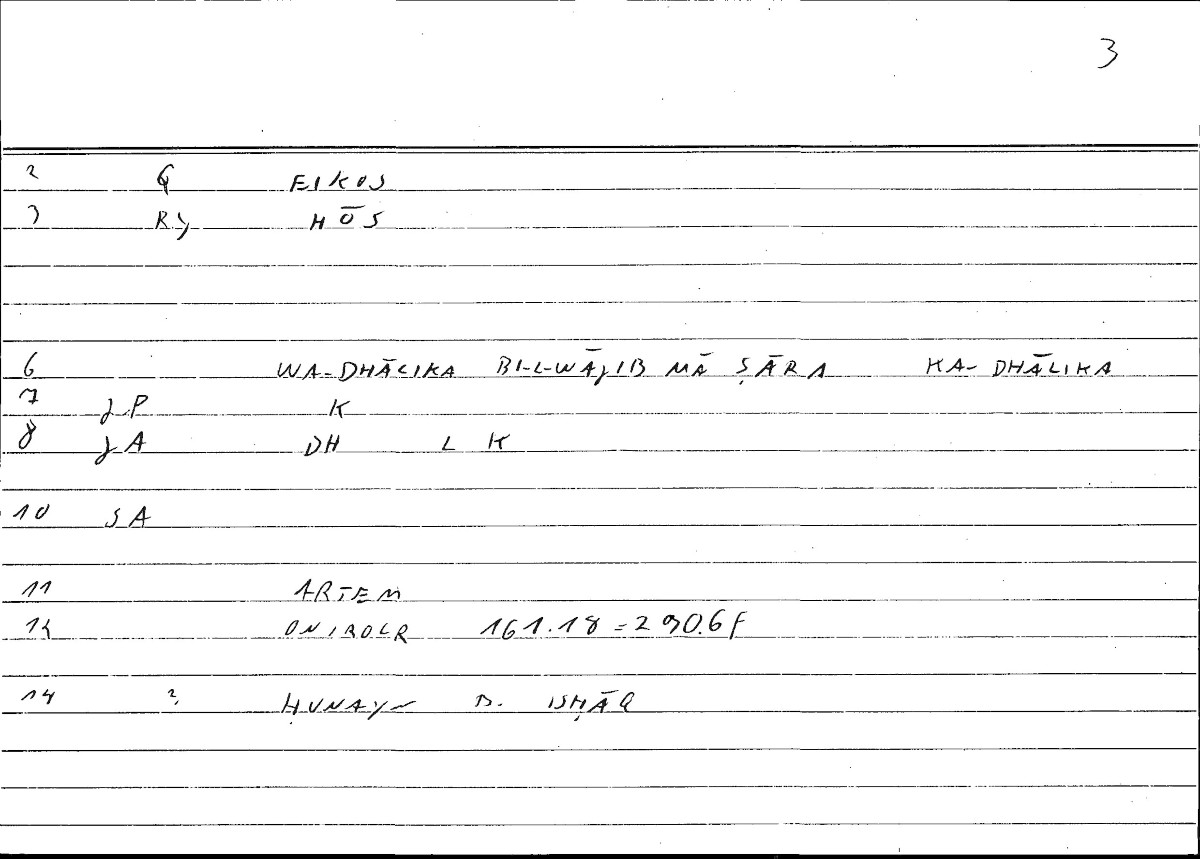 3
2 G EIKOS
3 Ry HŌS
6 WA-DHĀLIKA BI-L-WĀJIB MĀ ṢĀRA KA-DHĀLIKA
7 JP K
8 JA DH L K
10 SA
11 ARTEM
12 ONIROCR 161.18=290.6f
14 ? ḤUNAYN B. ISḤĀQ